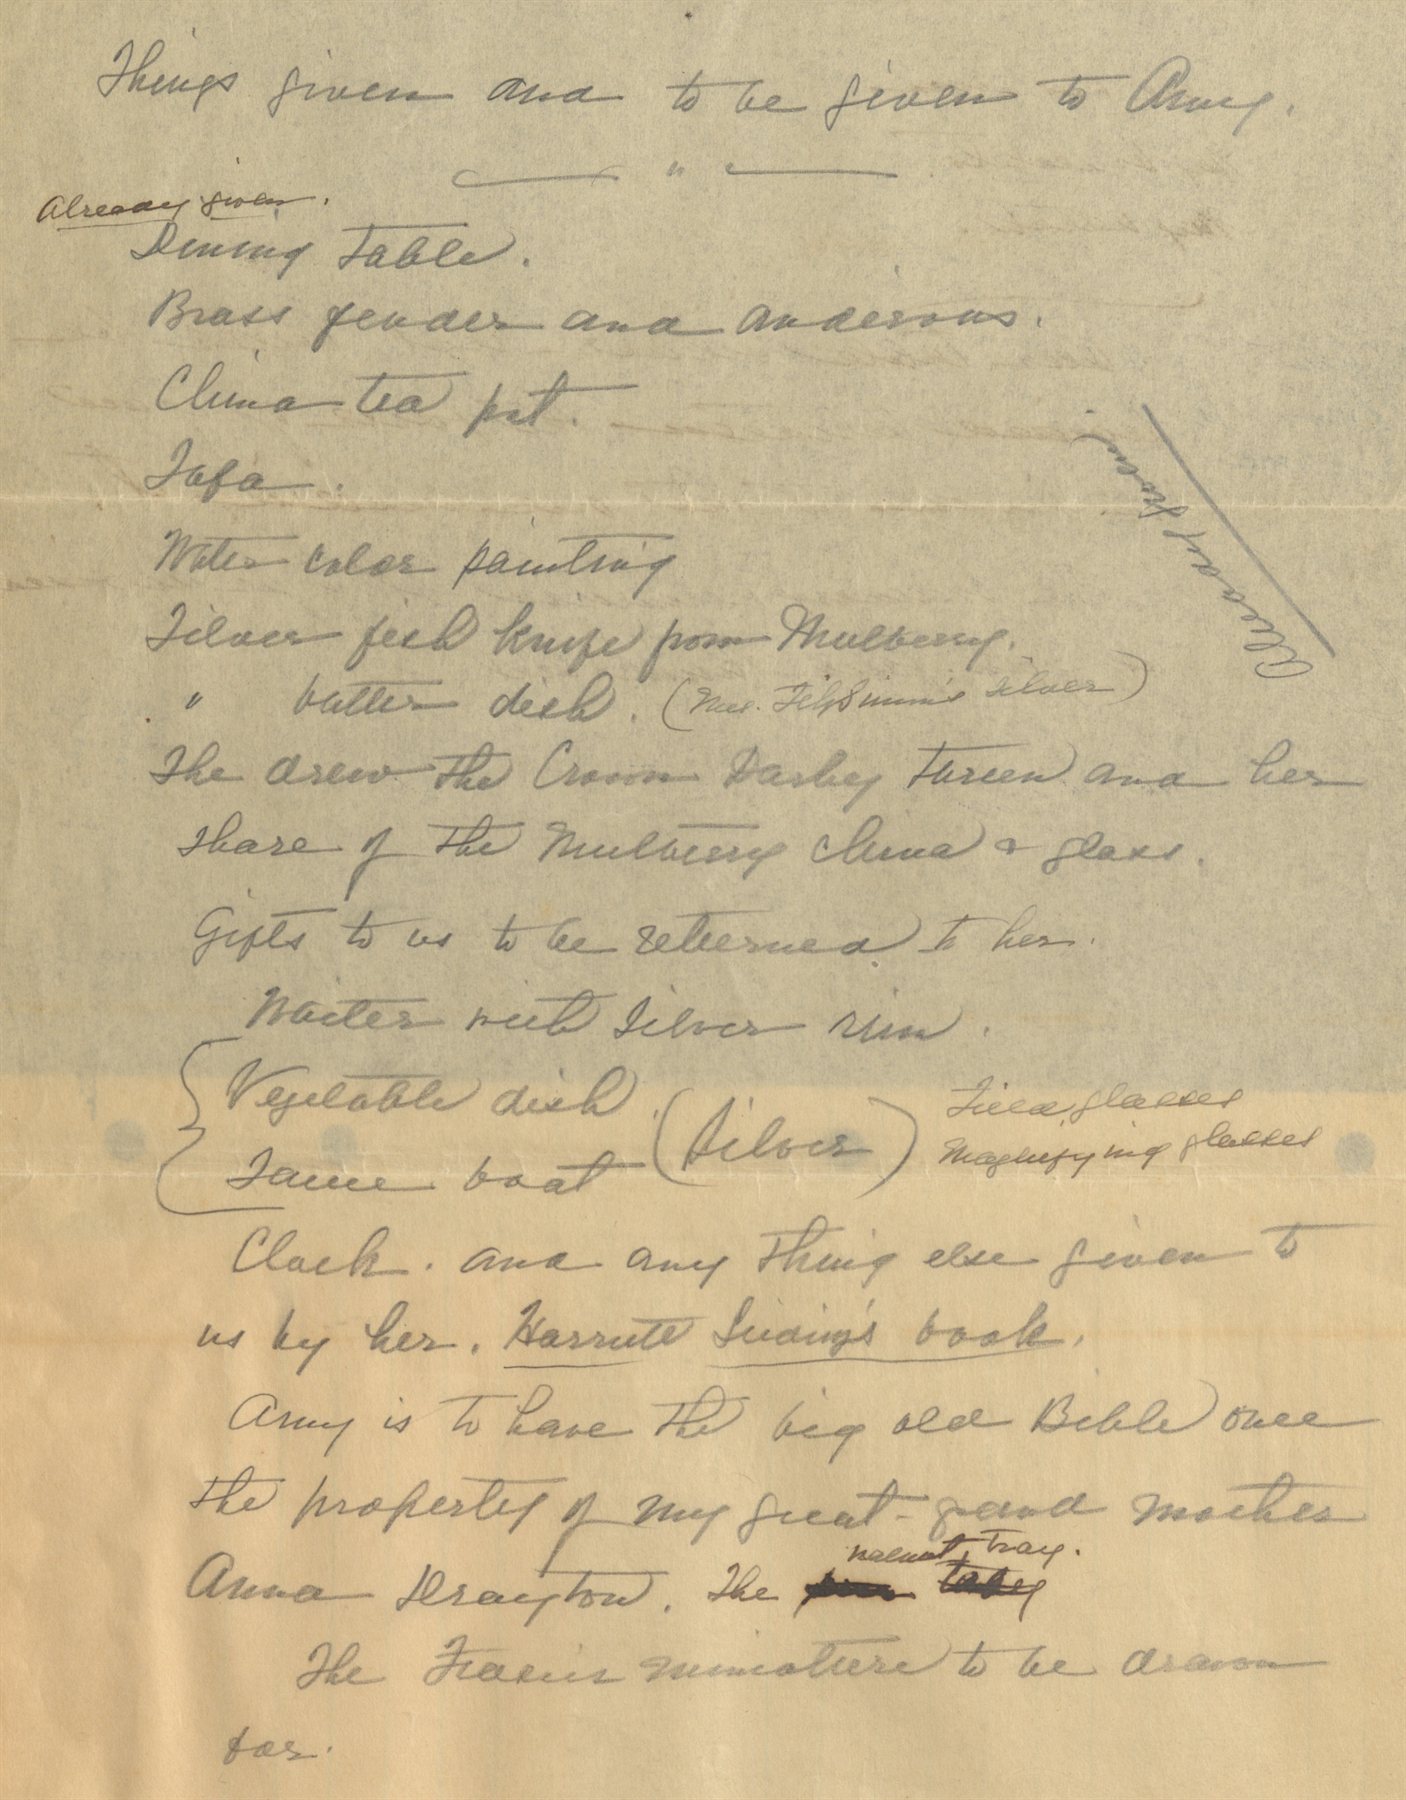 Things given and to be given to Amy.
"
Already given.
Dining Table.
Brass fender and andirons.
China tea pot.
Sofa.
Water color painting
Silver fish knife from Mulberry.
" butter dish. (Mrs. FitzSimm's silver)
Already given.
She drew the Crown Darby tureen and her
share of the Mulberry china & glass.
Gifts to us to be returned to her.
Waiter with silver rim.
Vegetable dish
(Silver)
Sauce boat
Field glasses
Magnifying glasses
Clock. and any thing else given to
us by her. book.
Amy is to have the big old Bible once
the property of my great-grand mother
walnut tray.
Anna Drayton. The
The Frasier miniature to be drawn
for.